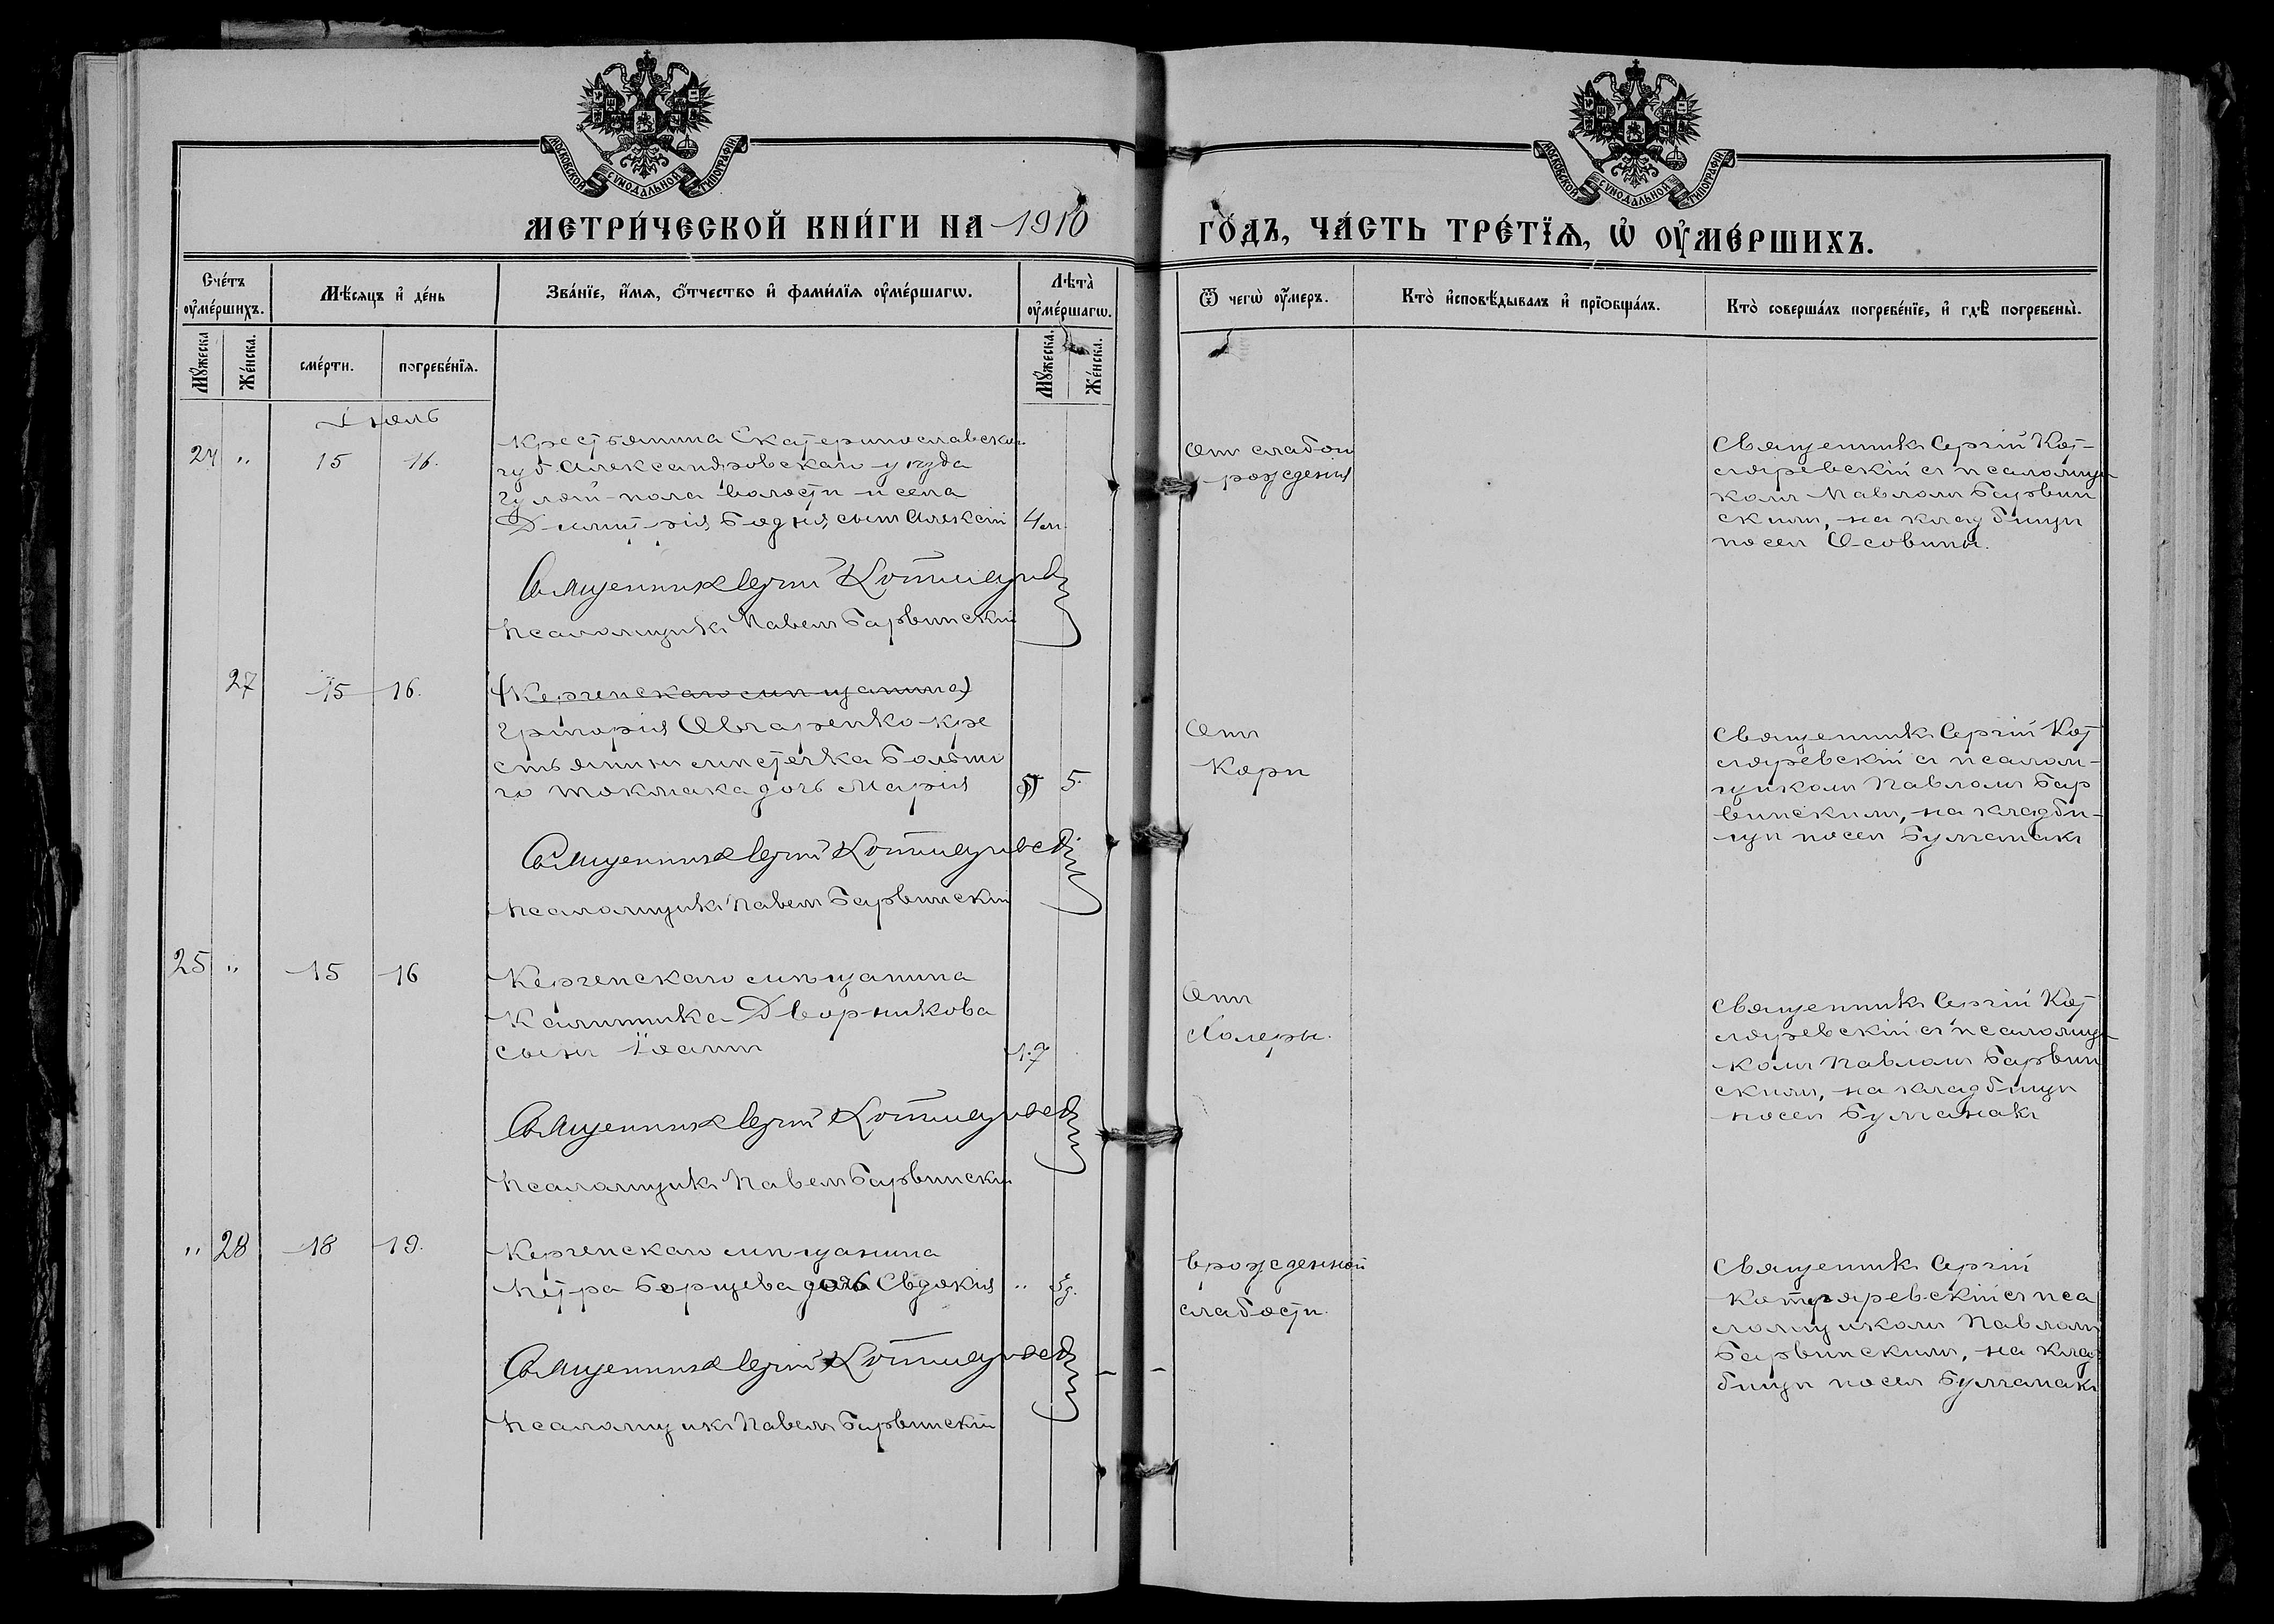 МОСКОВСКОЙ СѴНОДАЛЬНОЙ ТИПОГРАФІИ.
МОСКОВСКОЙ СѴНОДАЛЬНОЙ ТИПОГРАФІИ.
МЕТРИ́ЧЕСКОЙ КНИ́ГИ НА 1910
ГО́ДЪ, ЧА́СТЬ ТРЕ́ТЇѦ, Ѽ ОУ҆МЕ́РШИХЪ.
Сче́тъ оу҆ме́ршихъ.
Мѣ́сѧцъ и҆ де́нь
Зва́нїе, и҆́мѧ, ѻ҆́тчество и҆ фами́лїѧ оу҆ме́ршагѡ.
Лѣта̀ оу҆ме́ршагѡ.
Ѿ чегѡ̀ оу҆́меръ.
Кто̀ и҆сповѣ́дывалъ и҆ прїѻбща́лъ.
Кто̀ соверша́лъ погребе́нїе, и҆ гдѣ̀ погребены̀.
Мꙋ́жеска
Же́нска.
сме́рти.
погребе́нїѧ.
Мꙋ́жеска.
Же́нска.
Іюль
24 " 15 16.
Крестьянина Екатеринославской
губ. Александровскаго уѣзда
Гуляй-пола волости и села
Димитрія Бодня, сынъ Алексій 4 м.
Священникъ Сергій Котляревскій
Псаломщикъ Павелъ Барвинскій
Отъ слабого
рожденія
Священникъ Сергій Кот-
ляревскій съ псаломщи
комъ Павломъ Барвин
скимъ, на кладбищѣ
посел. Осовины.
27 15 16.
(Керченскаго мѣщанина)
Григорія Овчаренко кре
стьянина мѣстечка Большо
го Токмака дочь Марія 5.
Священникъ Сергій Котляревскій
Псаломщикъ Павелъ Барвинскій
Отъ
Кори
Священникъ Сергій Кот
ляревскій съ псалом-
щикомъ Павломъ Бар
винскимъ, на кладби-
щѣ посел. Булганакъ
25 " 15 16
Керченскаго мѣщанина
Дворникова
сынъ Іоаннъ 1.7
Священникъ Сергій Котляревскій
Псаломщикъ Павелъ Барвинскій
Отъ
Холеры.
Священникъ Сергій Кот
ляревскій съ псаломщи
комъ Павломъ Барвин
скимъ, на кладбищѣ
посел. Булганакъ
" 28 18 19.
Керченскаго мѣщанина
Петра Борщева дочь Евдокія "
Священникъ Сергій Котляревскій
Псаломщикъ Павелъ Барвинскій
врожденной
слабости.
Священникъ Сергій
Котляревскій съ пса
ломщикомъ Павломъ
Барвинскимъ, на клад
бищѣ посел. Булганакъ